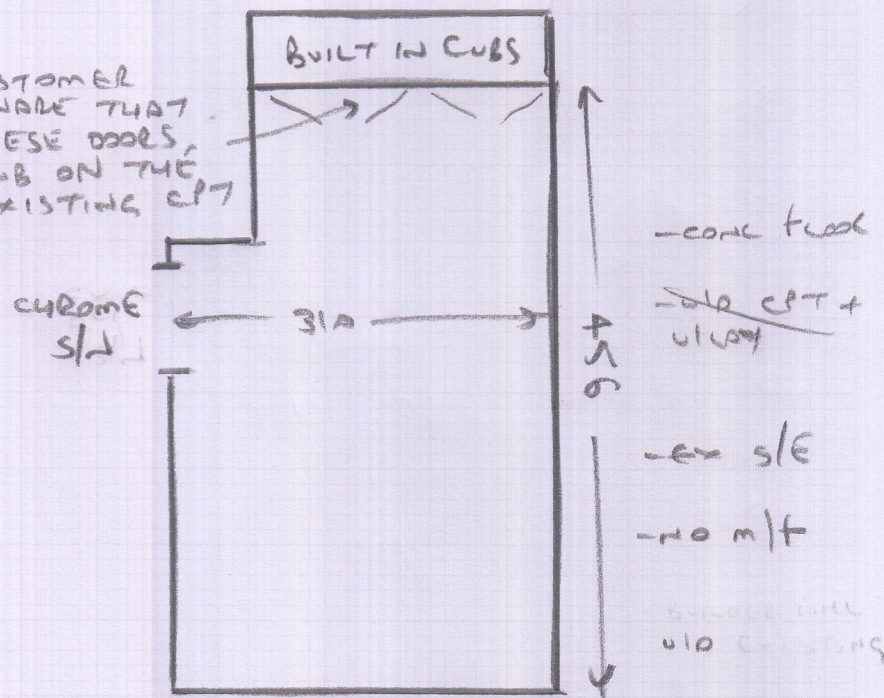 BUILT IN CUBS
STOMER
WARE THAT
ESE DOORS,
UB ON THE
XISTING CPT
CHROME
S/N
310
456
-CONC + WOOD
-U/D CPT +
U/LAY
-EX S/E
-NO M/F
BUILDER WILL
U/D EXISTING